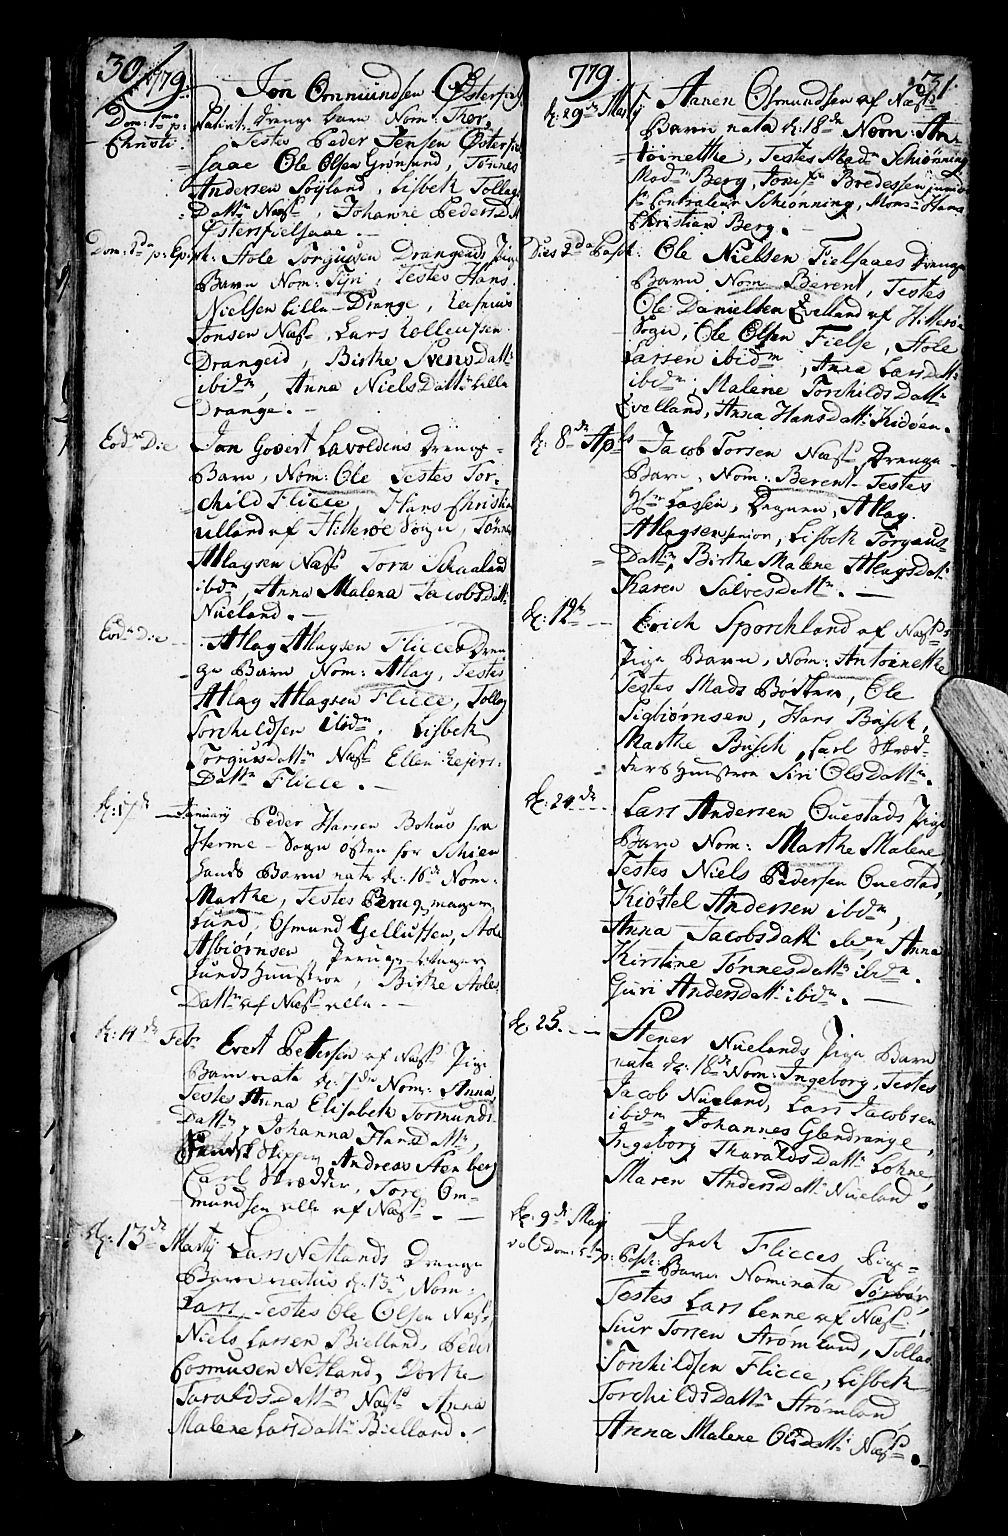 30 1779
Jon Ommundsen Østerfiel
Dom: 1ma p: Nativit: Drenge Barn Nom: Thor,
Christi. Testes Peder Jensen Østerfiel
saae Ole Olsen Grønsund, Tønnes
Andersen Søyland, Lisbeth Tollags
Datter Næss, Johanne Peders D
Østerfielsaae.
Dom: 2da p: Epiph: Aole Torgiusen Drangeids Pige
Barn Nom: Siri, Testes Hans
Nielsen Lille Drange, Rasmus
Jonsen Næss, Lars Tolleivsen
Drangeid, Birthe Svens Datt:
ibidm, Anna Niels Datt: Lille
Drange.
Eodm Die Jan Govert Lavoldens Drenge
Barn, Nom: Ole Testes Tor-
child Flicce, Hans Christia
ulland af Hitterøe Sogn, Tønnes
Atlagsen Næss Tora Schaaland
ibdm, Anna Malena Jacobsdatt:
Nueland.
Eodm Die Atlag Atlagsen Flicces Dren
ge Barn Nom: Atlag, Testes
Atlag Atlagsen Flicce, Tollag
Torchildsen ibidm, Lisbeth
Torgiusdattr Næss Ellen Rejers
Dattr Flicce.
d: 17de January Peder Hansen Bohus fra
Herme Sogn østen for Schien
Sands Barn nata d: 16de Nom:
Marthe, Testes Peruqvemager
Lund, Osmund Gellussen, Aole
Asbiørnsen Peruqve-mager
Lunds Hunstroe, Birthe Aoles
Dattr af Næss alle.
d: 14de Febr Evert Pettersen af Næss Pige
Barn nata d: 7de Nom: Anna,
Testes Anna Elisabeth Tormunds
Dattr, Johanna Hans Dattr,
Andreas Stenberg
Carl Skrædder, Tore Om-
mundsen alle af Næss.
d: 13de Martij Lars Netlands Drenge
Barn natus d: 13de Nom:
Lars, Testes Ole Olsen Næss,
Niels Larsen Bielland, Peder
Rasmusen Netland, Dorthe
Taralds Dattr Næss Anna
Malene Lars Dattr Bielland.
779 31
d: 29de Martij Aanen Osmundsen af Næss
Barn nata d: 18de Nom: An-
toinetthe, Testes Madm Schiønning
Madm Berg, Jomfr Bredessen junior
Hr Controleur Schiønning, Mons: Hans
Christian Berg.
Dies 2da Pasch: Ole Nielsen Fielsaaes Drenge
Barn Nom Berent, Testes
Ole Danielsen Evelland af Hitterøe
Sogn, Ole Olsen Fielse, Aole
Larsen ibidm, Anna Lars Datt:
ibidm, Malene Torchilds Dattr
Evelland, Anna Hans Datt: Kidøen.
d: 8de Aprls Jacob Torsen Næss Drenge
Barn, Nom: Berent Testes
Hr Lassen, Degnen, Atlag
Atlagsen senior, Lisbeth Torgius
Dattr, Birthe Malene Atlagsdatt:
Karen Salvesdattr.
d: 12te Erich Sporchland af Næss
Pige Barn, Nom: Antoinethe
Testes Mads Bødker, Ole
Sigbiørnsen, Hans Busch,
Marthe Busch, Carl Skræd-
ders Hunstroe Siri Olsdattr.
d: 24de Lars Andersen Qvestads Pige
Barn Nom: Marthe Malene
Testes Niels Pedersen Qvestad,
Kiøstel Andersen ibidm,
Anna Jacobsdatt ibidm, Anna
Kirstine Tønnesdattr ibidm
Guri Andersdatt: ibidm.
d: 25. Stener Nuelands Pige Barn
nata d: 18de Nom: Ingeborg, Testes
Jacob Nueland, Lars Jacobsen
ibidm Johannes Glendrange,
Ingeborg Tharalds Datt: Lohne,
Maren Anders Datt: Nueland.
d: 9de Maij Isach Flicces Pige-
vel Dom: 5ta p: Pasch: Barn Nominata Torbor,
Testes Lars Lenne af Næss,
Siur Torsen Strømland, Tollag
Torchildsen Flicce, Lisbeth
Torchilds Dattr Strømland,
Anna Malene Olsdatt: Næss.